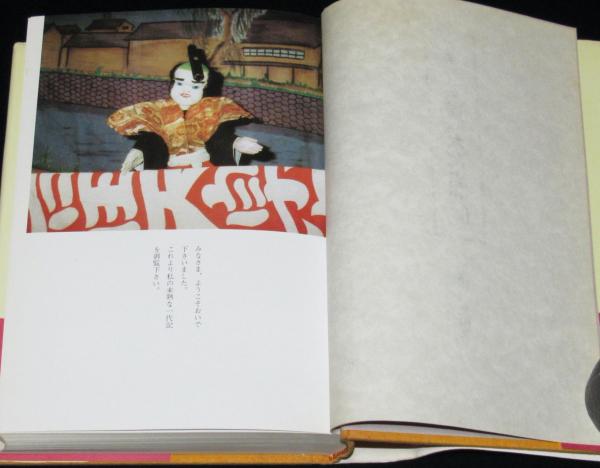 みなさま、ようこそおいで
下さいました。
これより私の未熟な一代記
を御覧下さい。